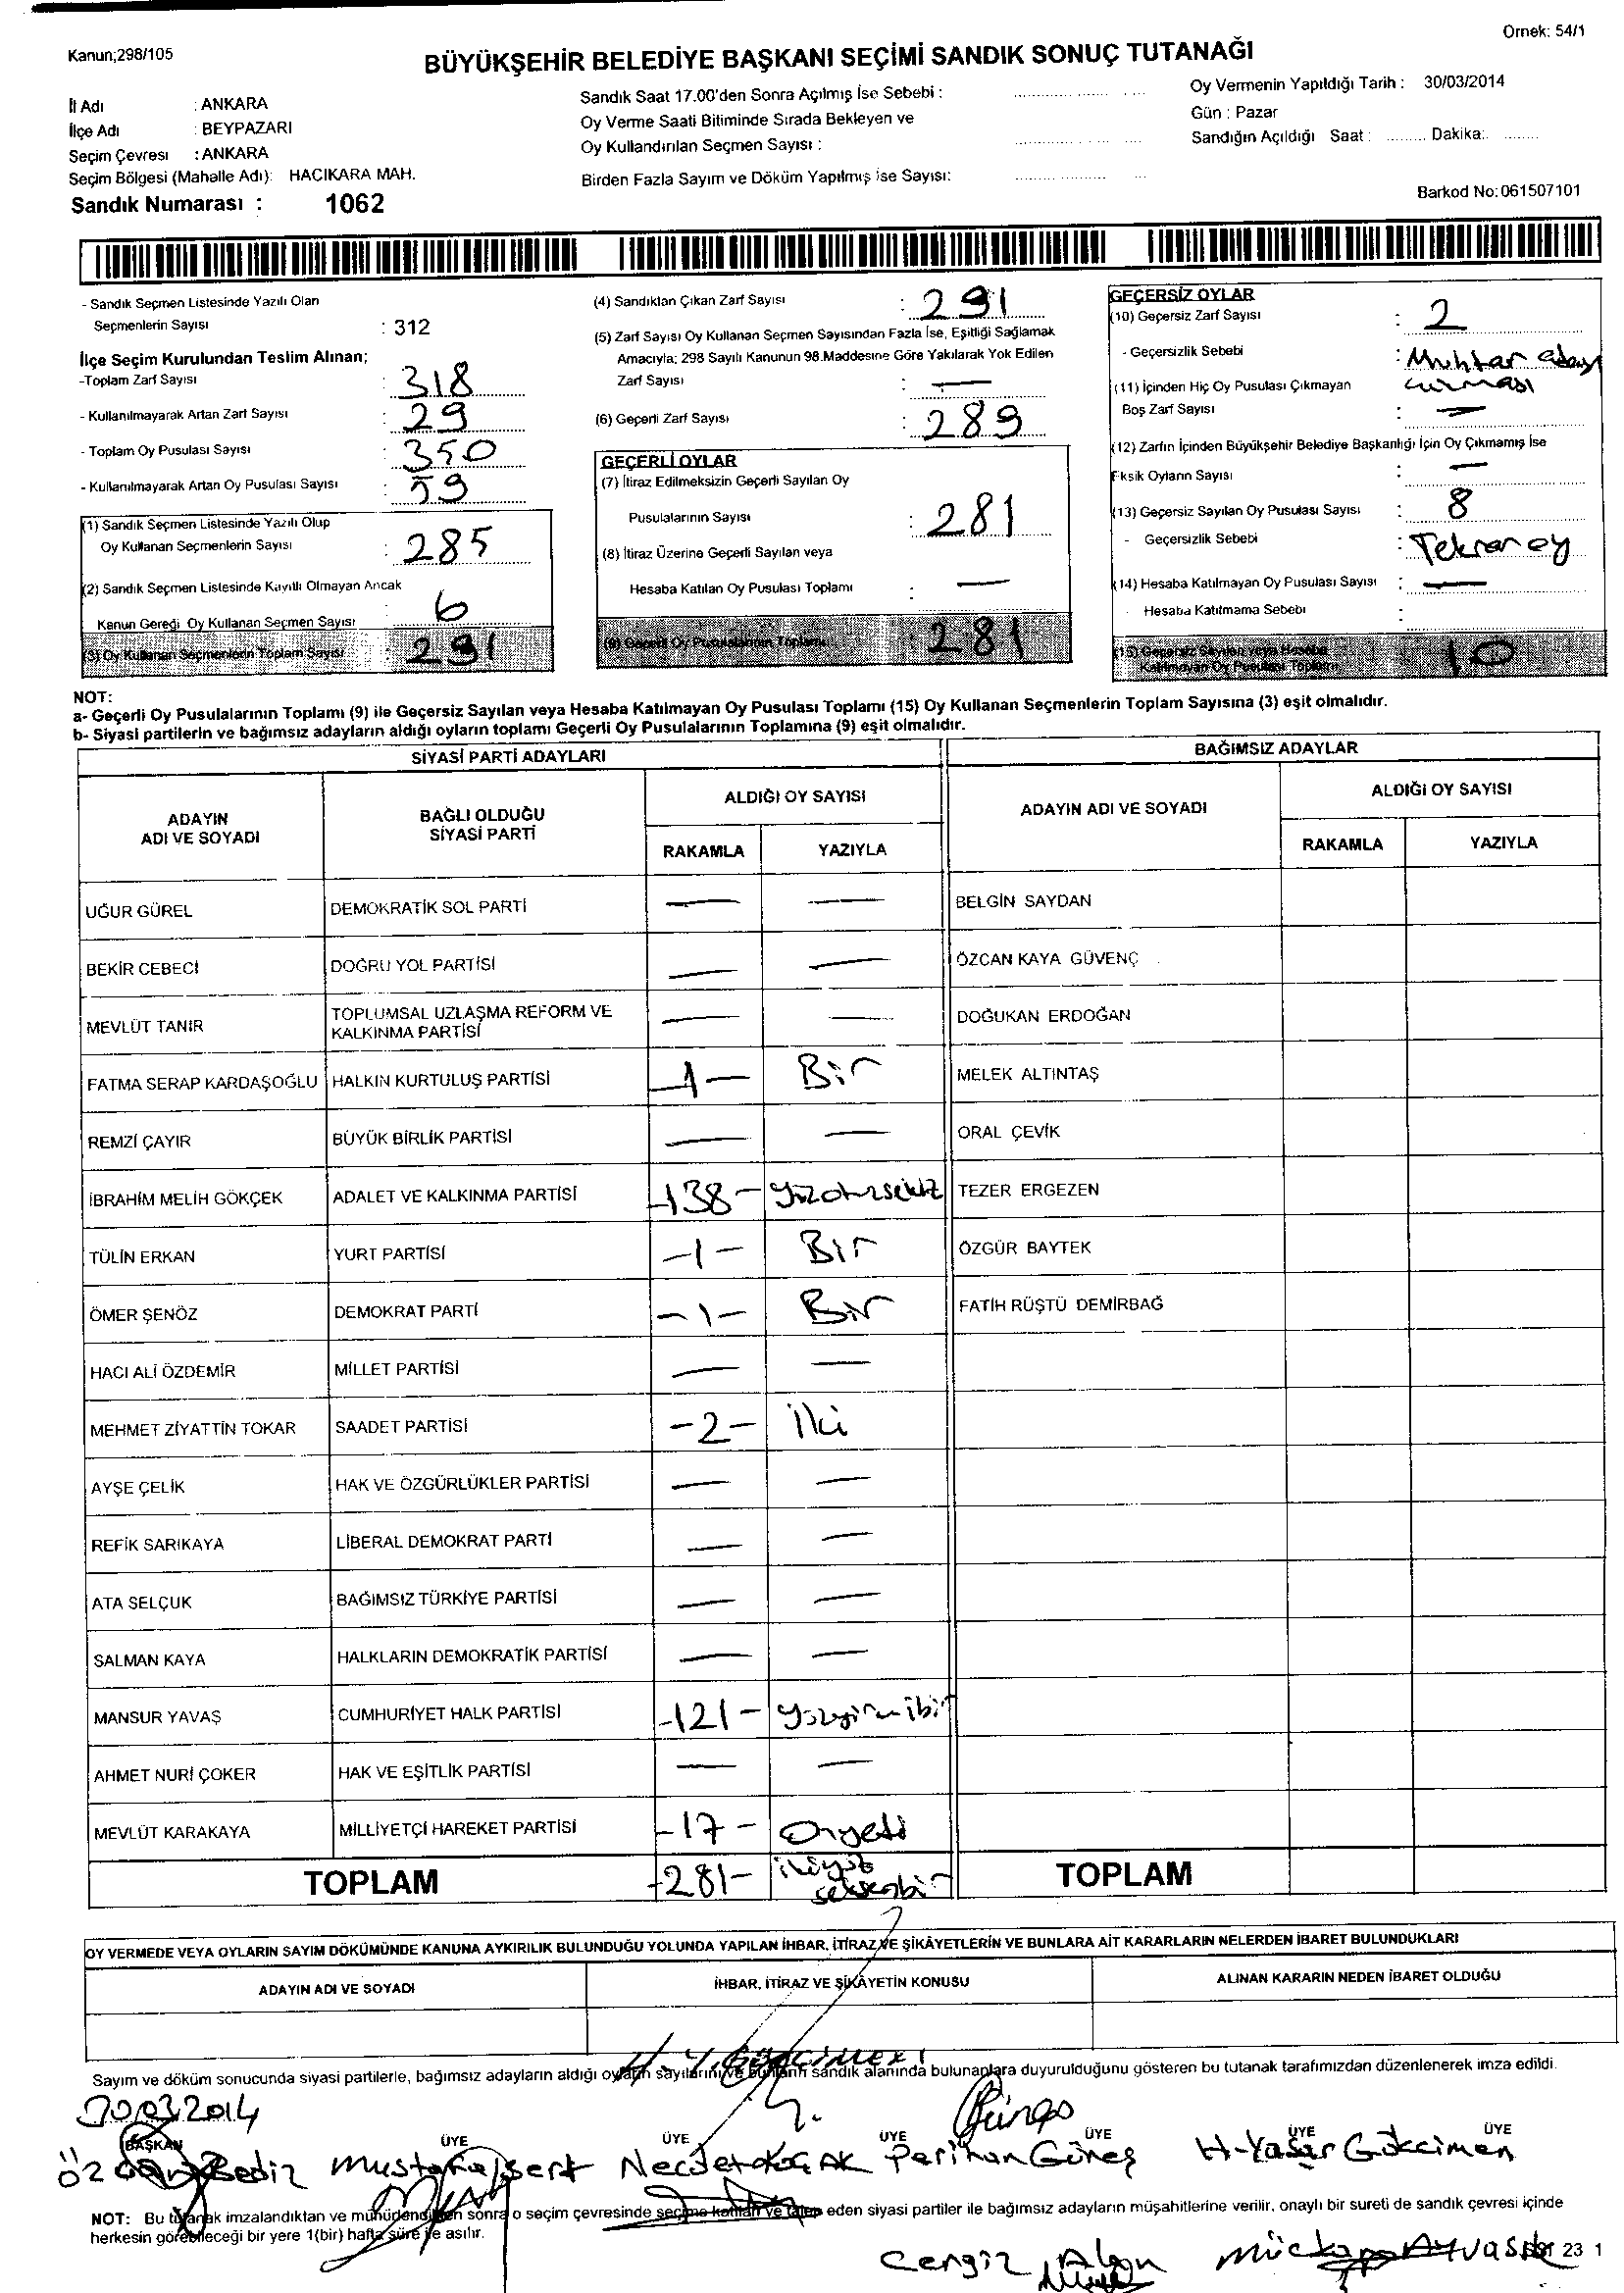 Kanun;298/105
Örnek: 54/1
BÜYÜKŞEHİR BELEDİYE BAŞKANI SEÇİMİ SANDIK SONUÇ TUTANAĞI
İl Adı : ANKARA
İlçe Adı : BEYPAZARI
Seçim Çevresi : ANKARA
Seçim Bölgesi (Mahalle Adı): HACIKARA MAH.
Sandık Numarası : 1062
Sandık Saat 17.00'den Sonra Açılmış İse Sebebi :
Oy Verme Saati Bitiminde Sırada Bekleyen ve
Oy Kullandırılan Seçmen Sayısı :
Birden Fazla Sayım ve Döküm Yapılmış ise Sayısı:
Oy Vermenin Yapıldığı Tarih : 30/03/2014
Gün : Pazar
Sandığın Açıldığı Saat : Dakika:
Barkod No:061507101
- Sandık Seçmen Listesinde Yazılı Olan
Seçmenlerin Sayısı : 312
İlçe Seçim Kurulundan Teslim Alınan;
-Toplam Zarf Sayısı : 318
- Kullanılmayarak Artan Zarf Sayısı : 29
- Toplam Oy Pusulası Sayısı : 350
- Kullanılmayarak Artan Oy Pusulası Sayısı : 59
(1) Sandık Seçmen Listesinde Yazılı Olup
Oy Kullanan Seçmenlerin Sayısı : 285
(2) Sandık Seçmen Listesinde Kayıtlı Olmayan Ancak
Kanun Gereği Oy Kullanan Seçmen Sayısı : 6
(3) Oy Kullanan Seçmenlerin Toplam Sayısı 291
(4) Sandıktan Çıkan Zarf Sayısı : 291
(5) Zarf Sayısı Oy Kullanan Seçmen Sayısından Fazla İse, Eşitliği Sağlamak
Amacıyla; 298 Sayılı Kanunun 98.Maddesine Göre Yakılarak Yok Edilen
Zarf Sayısı : —
(6) Geçerli Zarf Sayısı : 289
GEÇERLİ OYLAR
(7) İtiraz Edilmeksizin Geçerli Sayılan Oy
Pusulalarının Sayısı : 281
(8) İtiraz Üzerine Geçerli Sayılan veya
Hesaba Katılan Oy Pusulası Toplamı : —
(9) Geçerli Oy Pusulalarının Toplamı 281
GEÇERSİZ OYLAR
(10) Geçersiz Zarf Sayısı : 2
- Geçersizlik Sebebi : Muhtar adayı
(11) İçinden Hiç Oy Pusulası Çıkmayan
Boş Zarf Sayısı : —
(12) Zarfın İçinden Büyükşehir Belediye Başkanlığı İçin Oy Çıkmamış İse
Eksik Oyların Sayısı : —
(13) Geçersiz Sayılan Oy Pusulası Sayısı : 8
- Geçersizlik Sebebi : Tekrar oy
(14) Hesaba Katılmayan Oy Pusulası Sayısı : —
- Hesaba Katılmama Sebebi :
(15) Geçersiz Sayılan veya Hesaba
Katılmayan Oy Pusulası Toplamı 10
NOT:
a- Geçerli Oy Pusulalarının Toplamı (9) ile Geçersiz Sayılan veya Hesaba Katılmayan Oy Pusulası Toplamı (15) Oy Kullanan Seçmenlerin Toplam Sayısına (3) eşit olmalıdır.
b- Siyasi partilerin ve bağımsız adayların aldığı oyların toplamı Geçerli Oy Pusulalarının Toplamına (9) eşit olmalıdır.
SİYASİ PARTİ ADAYLARI
BAĞIMSIZ ADAYLAR
ADAYIN ADI VE SOYADI
BAĞLI OLDUĞU SİYASİ PARTİ
ALDIĞI OY SAYISI
RAKAMLA YAZIYLA
ADAYIN ADI VE SOYADI
ALDIĞI OY SAYISI
RAKAMLA YAZIYLA
UĞUR GÜREL DEMOKRATİK SOL PARTİ — — BELGİN SAYDAN
BEKİR CEBECİ DOĞRU YOL PARTİSİ — — ÖZCAN KAYA GÜVENÇ
MEVLÜT TANIR TOPLUMSAL UZLAŞMA REFORM VE KALKINMA PARTİSİ — — DOĞUKAN ERDOĞAN
FATMA SERAP KARDAŞOĞLU HALKIN KURTULUŞ PARTİSİ -1- Bir MELEK ALTINTAŞ
REMZİ ÇAYIR BÜYÜK BİRLİK PARTİSİ — — ORAL ÇEVİK
İBRAHİM MELİH GÖKÇEK ADALET VE KALKINMA PARTİSİ -138- yüzotuzsekiz TEZER ERGEZEN
TÜLİN ERKAN YURT PARTİSİ -1- Bir ÖZGÜR BAYTEK
ÖMER ŞENÖZ DEMOKRAT PARTİ -1- Bir FATİH RÜŞTÜ DEMİRBAĞ
HACI ALİ ÖZDEMİR MİLLET PARTİSİ — —
MEHMET ZİYATTİN TOKAR SAADET PARTİSİ -2- İki
AYŞE ÇELİK HAK VE ÖZGÜRLÜKLER PARTİSİ — —
REFİK SARIKAYA LİBERAL DEMOKRAT PARTİ — —
ATA SELÇUK BAĞIMSIZ TÜRKİYE PARTİSİ — —
SALMAN KAYA HALKLARIN DEMOKRATİK PARTİSİ — —
MANSUR YAVAŞ CUMHURİYET HALK PARTİSİ -121- yüzyirmibir
AHMET NURİ ÇOKER HAK VE EŞİTLİK PARTİSİ — —
MEVLÜT KARAKAYA MİLLİYETÇİ HAREKET PARTİSİ -17- Onyedi
TOPLAM -281- ikiyüz seksenbir TOPLAM
OY VERMEDE VEYA OYLARIN SAYIM DÖKÜMÜNDE KANUNA AYKIRILIK BULUNDUĞU YOLUNDA YAPILAN İHBAR, İTİRAZ VE ŞİKÂYETLERİN VE BUNLARA AİT KARARLARIN NELERDEN İBARET BULUNDUKLARI
ADAYIN ADI VE SOYADI İHBAR, İTİRAZ VE ŞİKÂYETİN KONUSU ALINAN KARARIN NEDEN İBARET OLDUĞU
Sayım ve döküm sonucunda siyasi partilerle, bağımsız adayların aldığı oyların sayılarını ve bunların sandık alanında bulunanlara duyurulduğunu gösteren bu tutanak tarafımızdan düzenlenerek imza edildi.
30.03.2014
BAŞKAN ÜYE ÜYE ÜYE ÜYE ÜYE ÜYE
Mustafa Sert Necdet Koçak Perihan Güneş H-Yaşar Gökcimen
NOT: Bu tutanak imzalandıktan ve mühürlendikten sonra o seçim çevresinde seçime katılan ve talep eden siyasi partiler ile bağımsız adayların müşahitlerine verilir, onaylı bir sureti de sandık çevresi içinde
herkesin görebileceği bir yere 1(bir) hafta süre ile asılır.
Cengiz
23 1